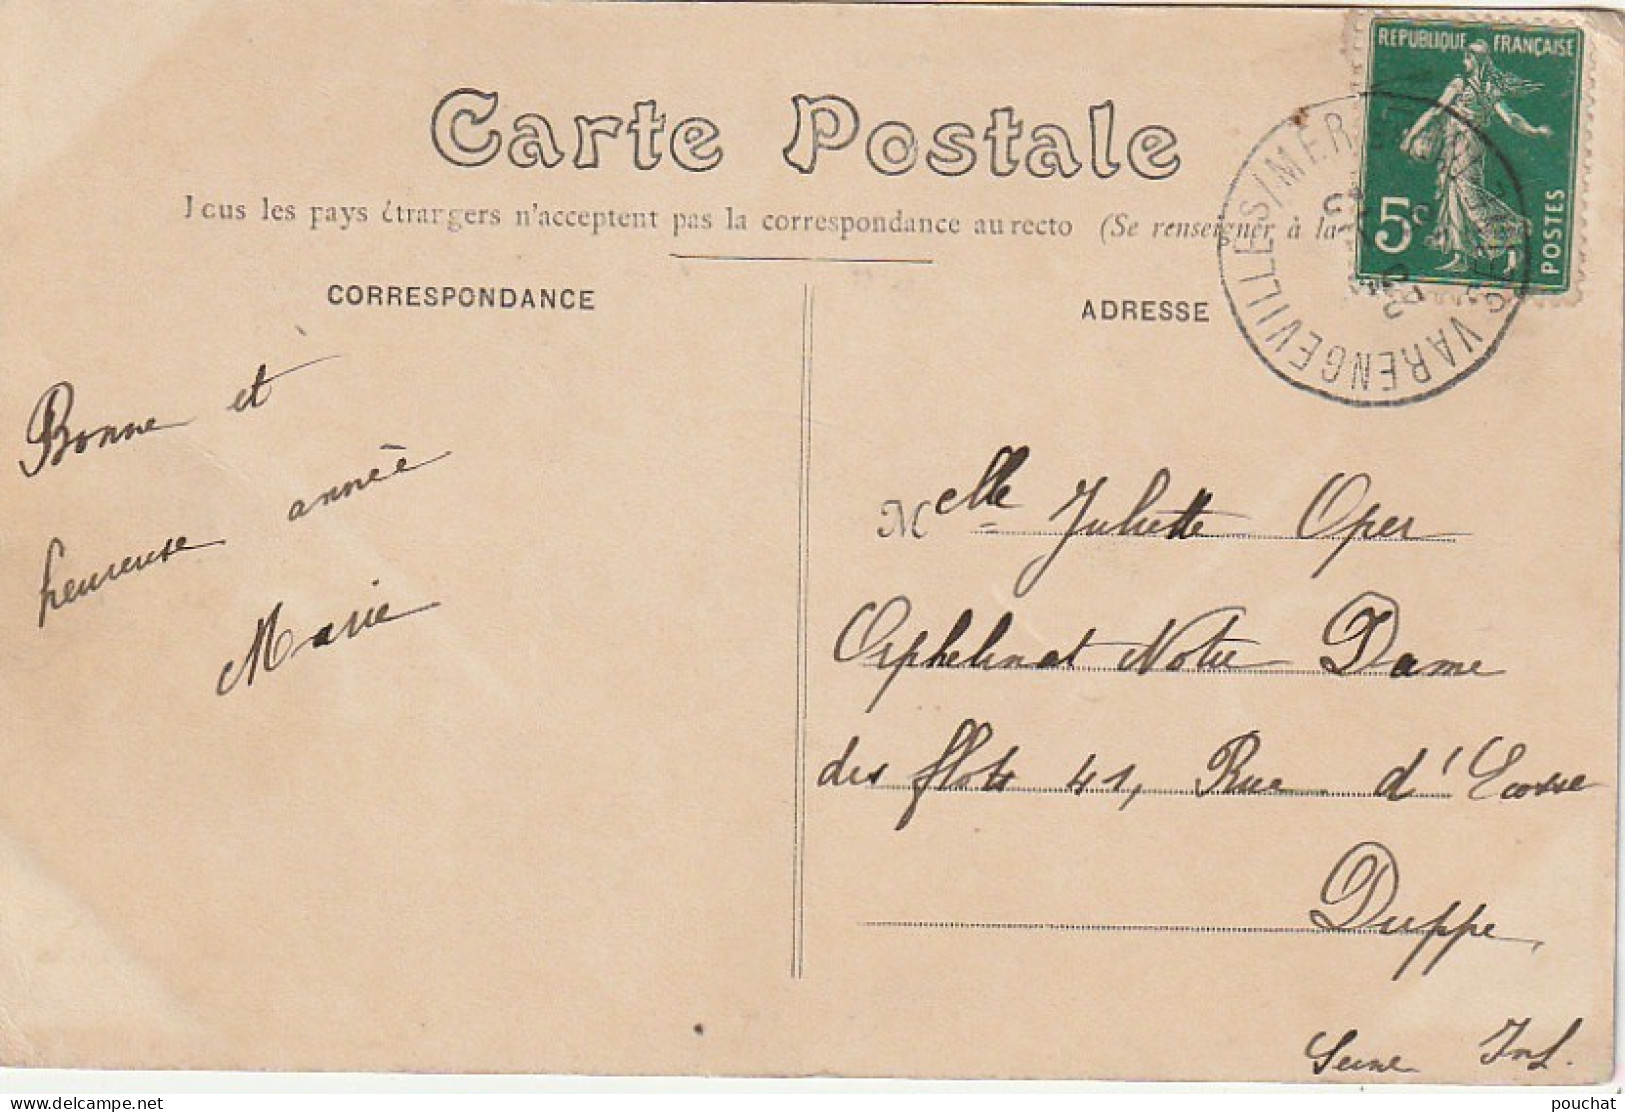 RÉPUBLIQUE FRANÇAISE
5c
POSTES
VARENGEVILLE S/MER
Carte Postale
Tous les pays étrangers n'acceptent pas la correspondance au recto (Se renseigner à la
CORRESPONDANCE
ADRESSE
Bonne et
heureuse année
Marie
Melle Juliette Oper
Orphelinat Notre Dame
des flots 41, Rue d'Ecosse
Dieppe
Seine Inf.
pouchat